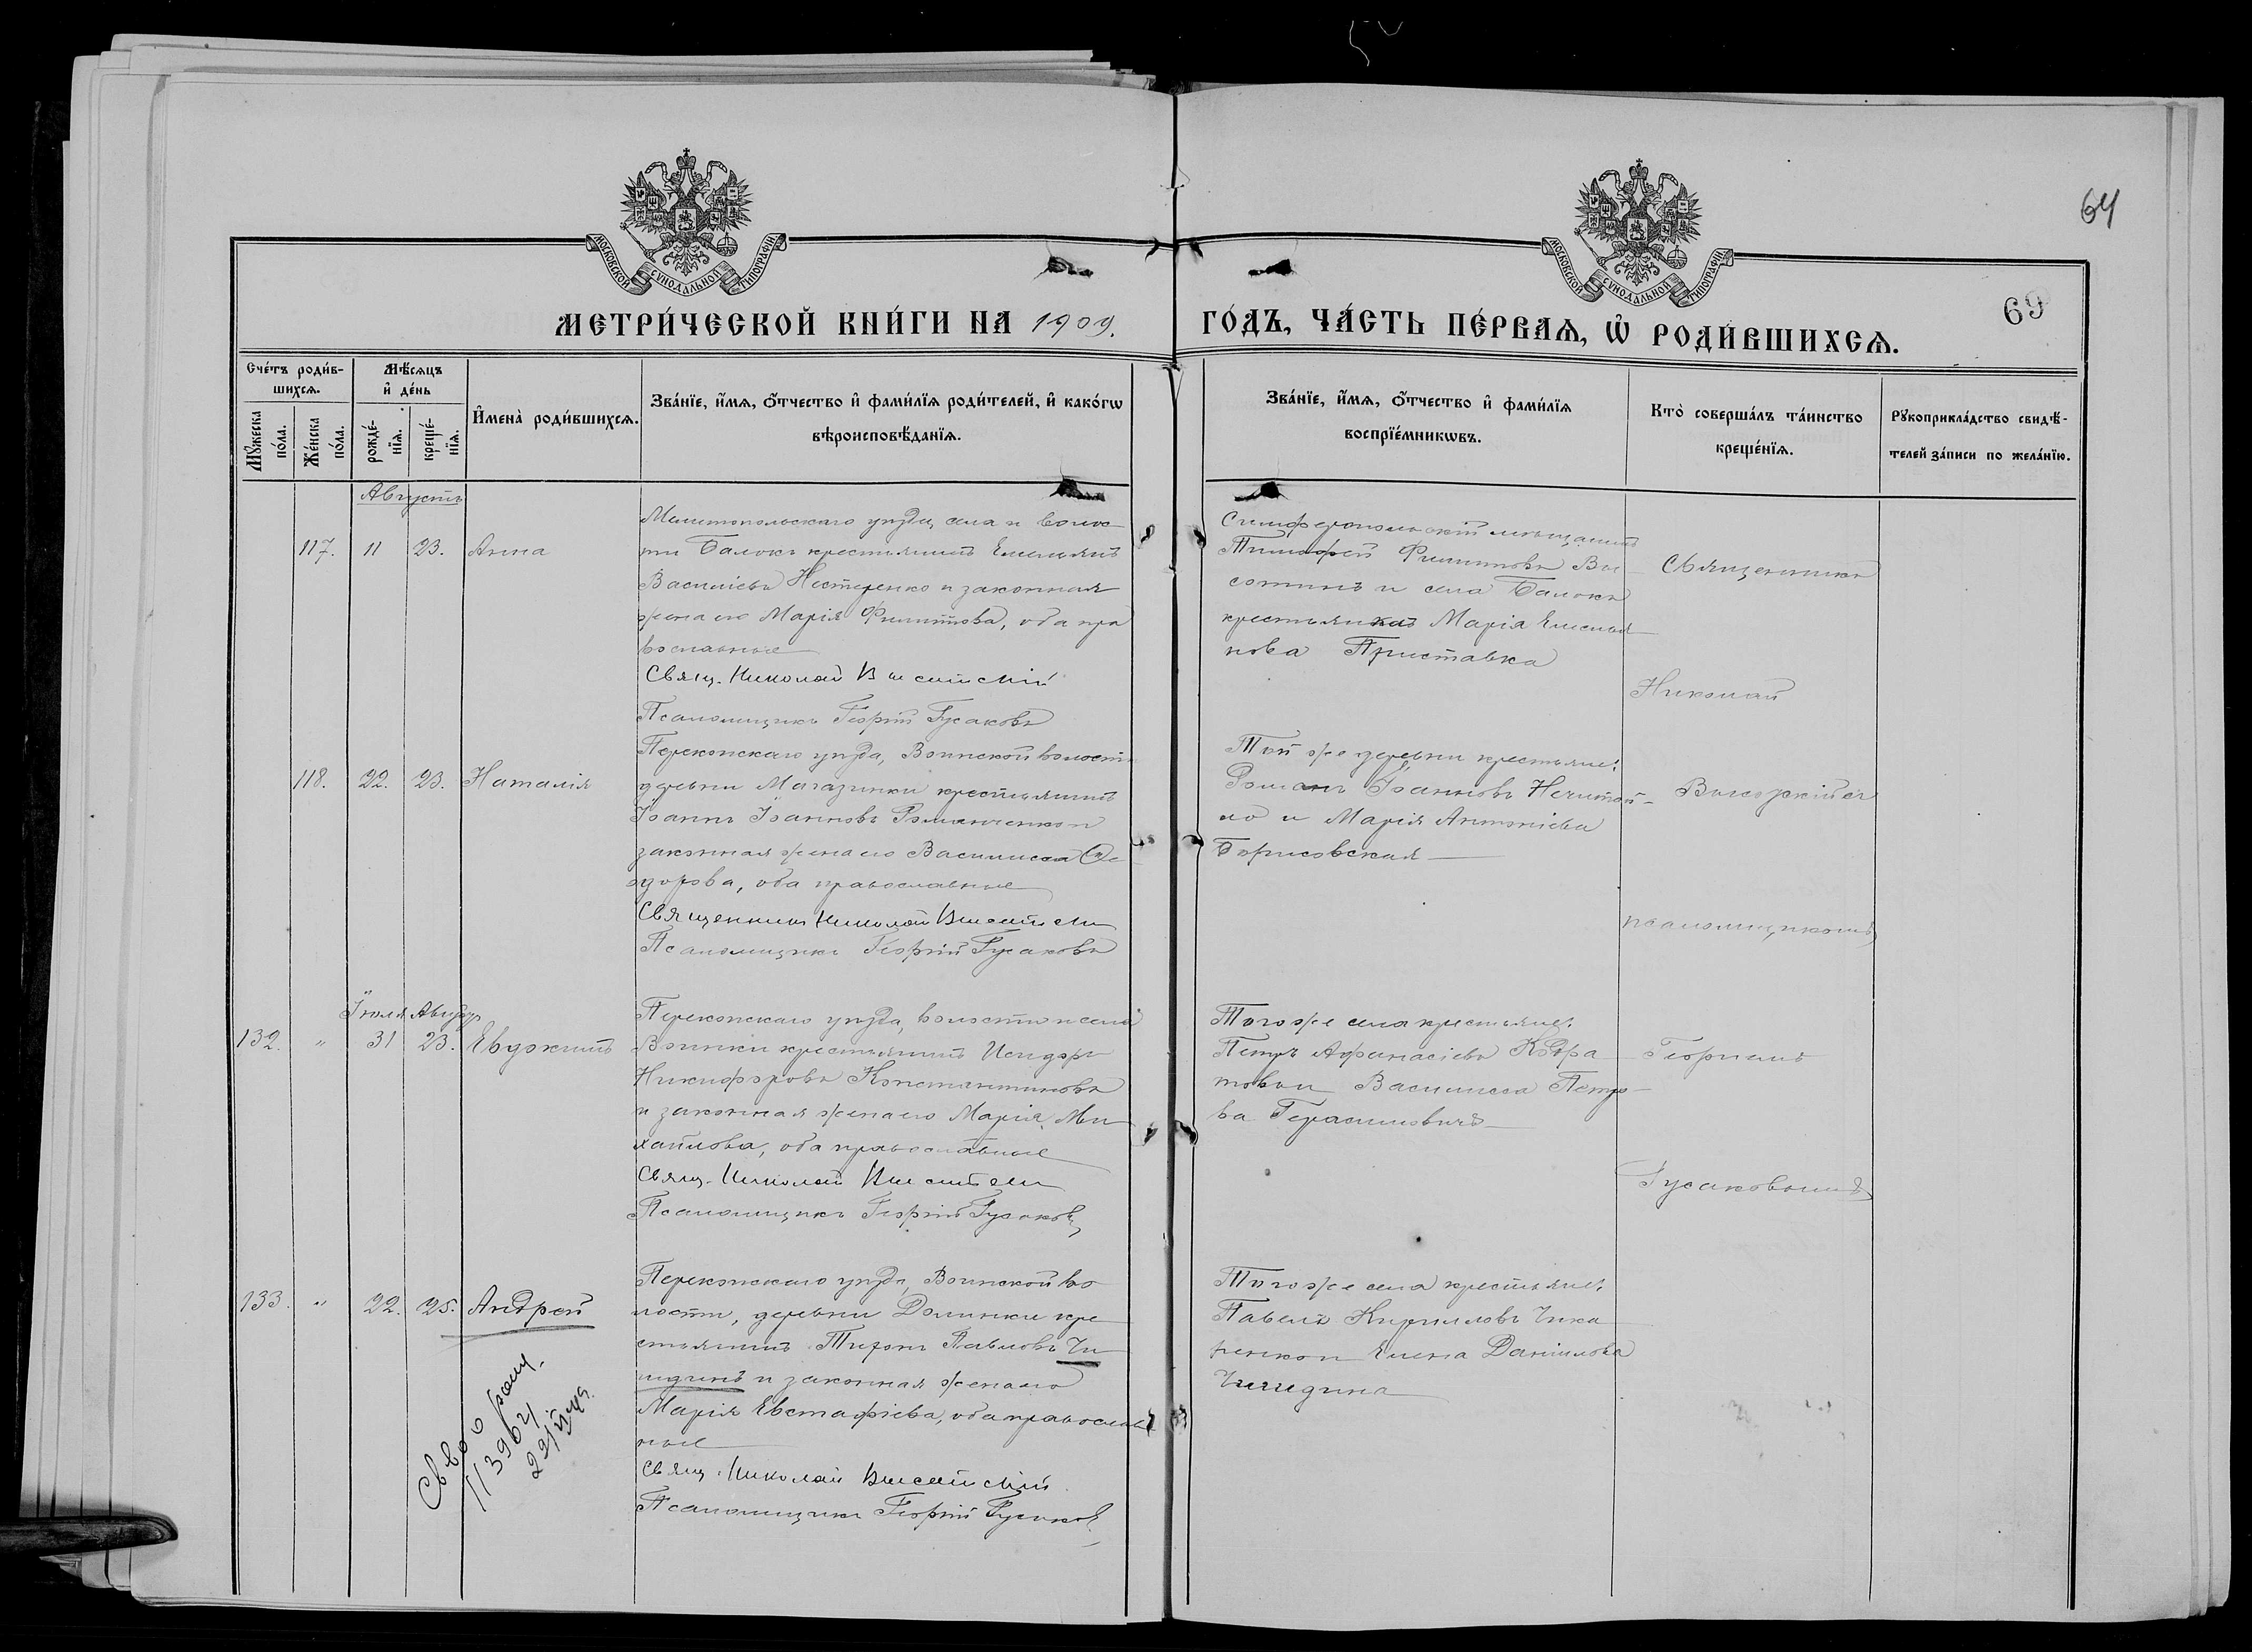 64
69
МОСКОВСКОЙ СѴНОДАЛЬНОЙ ТИПОГРАФІИ
МОСКОВСКОЙ СѴНОДАЛЬНОЙ ТИПОГРАФІИ
МЕТРИ́ЧЕСКОЙ КНИ́ГИ НА 1909.
ГО́ДЪ, ЧА́СТЬ ПЕ́РВАѦ, Ѡ҆ РОДИ́ВШИХСѦ.
Сче́тъ роди́в-
шихсѧ.
Мꙋжеска по́ла.
Же́нска по́ла.
Мѣ́сѧцъ
и҆ де́нь
рожде́-
нїѧ.
креще́-
нїѧ.
И҆мена̀ роди́вшихсѧ.
Зва́нїе, и҆́мѧ, ѻ҆́тчество и҆ фами́лїѧ роди́телей, и҆ како́гѡ
вѣроисповѣ́данїѧ.
Зва́нїе, и҆́мѧ, ѻ҆́тчество и҆ фами́лїѧ
воспрїе́мникѡвъ.
Кто̀ соверша́лъ та́инство
креще́нїѧ.
Рꙋкоприкла́дство свидѣ́-
телей за́писи по жела́нїю.
Августъ
117. 11 23. Анна
Мелитопольскаго уѣзда, села и волос
ти Балокъ крестьянинъ Емельянъ
Василіевъ Нестеренко и законная
жена его Марія Филиппова, оба пра
вославные
Свящ. Николай
Псаломщикъ Георгій Гусаковъ
Симферопольскій мѣщанинъ
Тимофей Филипповъ
и села Балокъ
Марія Емелья
нова Приставка
Священникъ
Николай
118. 22. 23. Наталія
Перекопскаго уѣзда, Воинской волости
деревни Магазинки крестьянинъ
Іоаннъ Іоанновъ Романченко и
законная жена его Василисса Ѳе
одорова, оба православные
Священникъ Николай
Псаломщикъ Георгій Гусаковъ
Той же деревни крестьяне:
Романъ Іоанновъ
ло и Марія Антоніева
Борисовская
съ
псаломщикомъ
Іюля Август
132. " 31 23. Евдокимъ
Перекопскаго уѣзда, волости и села
Воинки крестьянинъ Исидоръ
Никифоровъ Константиновъ
и законная жена его Марія Ми
хайлова, оба православные
Свящ. Николай
Псаломщикъ Георгій Гусаковъ
Того же села крестьяне:
Петръ Афанасіевъ
Василисса Петро
ва Герасимовичъ
Георгіемъ
Гусаковымъ
133. " 22. 25. Андрей
Перекопскаго уѣзда, Воинской во
лости, деревни Долинки кре
стьянинъ Тихонъ Павловъ Чи
и законная жена его
Марія Евстафіева, оба православ
ные
Свящ. Николай
Псаломщикъ Георгій Гусаковъ
Того же села крестьяне:
Павелъ Кирилловъ Чика
ренко и Елена Даніилова
113964